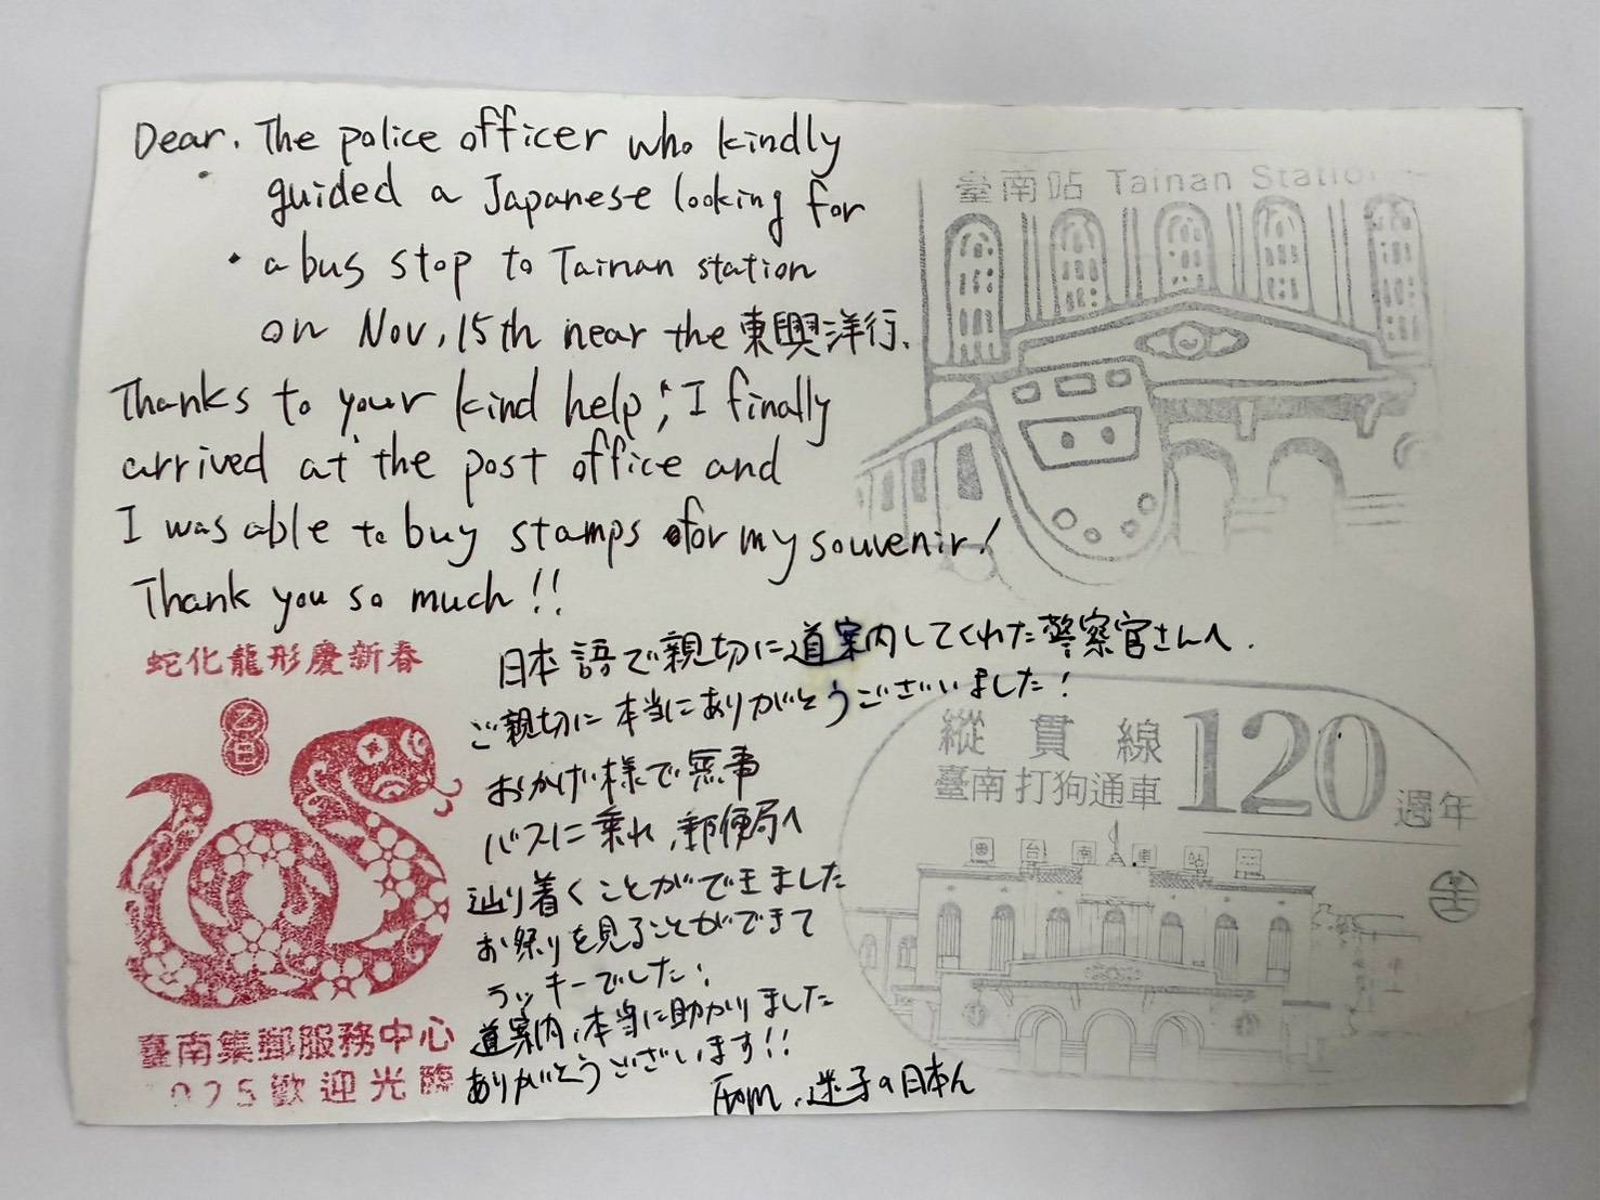 Dear. The police officer who kindly
guided a Japanese looking for
a bus stop to Tainan station
on Nov, 15th near the 東興洋行.
Thanks to your kind help, I finally
arrived at the post office and
I was able to buy stamps for my souvenir!
Thank you so much!!
臺南站 Tainan Station
日本語で親切に道案内してくれた警察官さんへ.
ご親切に本当にありがとうございました!
おかげ様で無事
バスに乗れ、郵便局へ
辿り着くことができました
お祭りを見ることができて
ラッキーでした!
道案内、本当に助かりました
ありがとうございます!!
From、迷子の日本人
蛇化龍形慶新春
乙巳
臺南集郵服務中心
2025歡迎光臨
縱貫線
臺南打狗通車
120週年